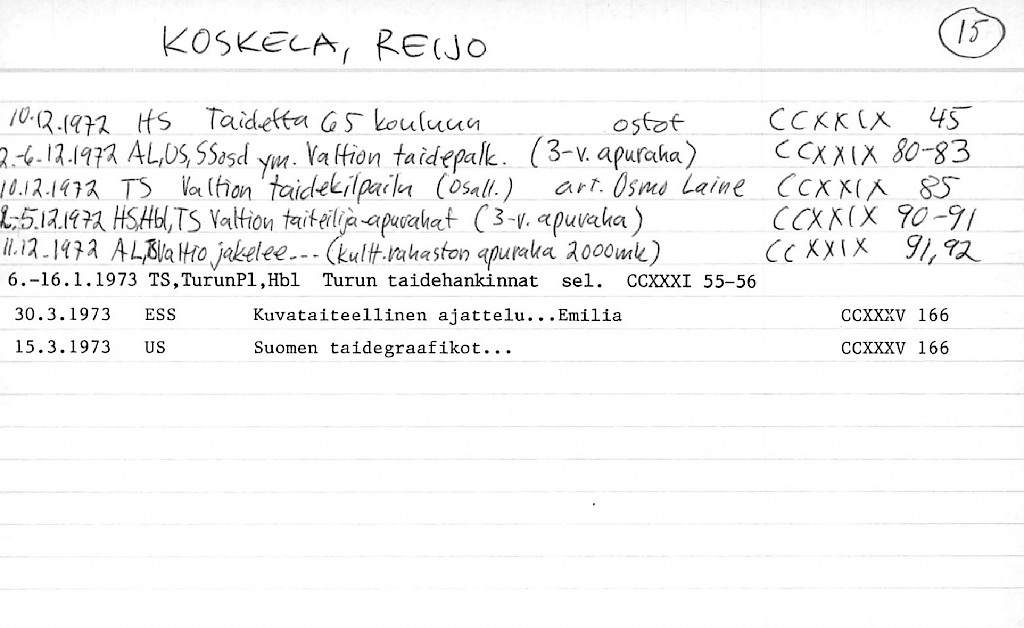 KOSKELA, REIJO 15
10.12.1972 HS Taidetta 65 kouluun ostot CCXXIX 45
2.-6.12.1972 AL,US,SSosd ym. Valtion taidepalk. (3-v. apuraha) CCXXIX 80-83
10.12.1972 TS Valtion taidekilpailu (osall.) art. Osmo Laine CCXXIX 85
2.-5.12.1972 HS,Hbl,TS Valtion taiteilija-apurahat (3-v. apuraha) CCXXIX 90-91
11.12.1972 AL, Valtio jakelee--- (kultt.rahaston apuraha 2000mk) CCXXIX 91,92
6.-16.1.1973 TS,TurunPl,Hbl Turun taidehankinnat sel. CCXXXI 55-56
30.3.1973 ESS Kuvataiteellinen ajattelu...Emilia CCXXXV 166
15.3.1973 US Suomen taidegraafikot... CCXXXV 166